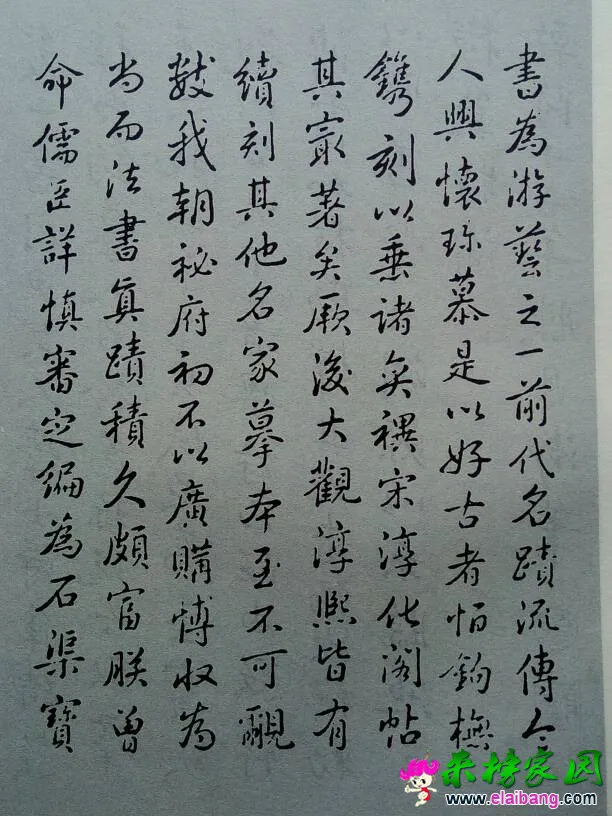 書為游藝之一前代名蹟流傳令
人興懷珎慕是以好古者恒鉤橅
鐫刻以垂諸奕禩宋淳化閣帖
其㝡著矣厥後大觀淳熙皆有
續刻其他名家摹本至不可覼
數我朝祕府初不以廣購博收為
尚而法書真蹟積久頗富朕曾
命儒臣詳慎審定編為石渠寶
来榜家园
www.elaibang.com